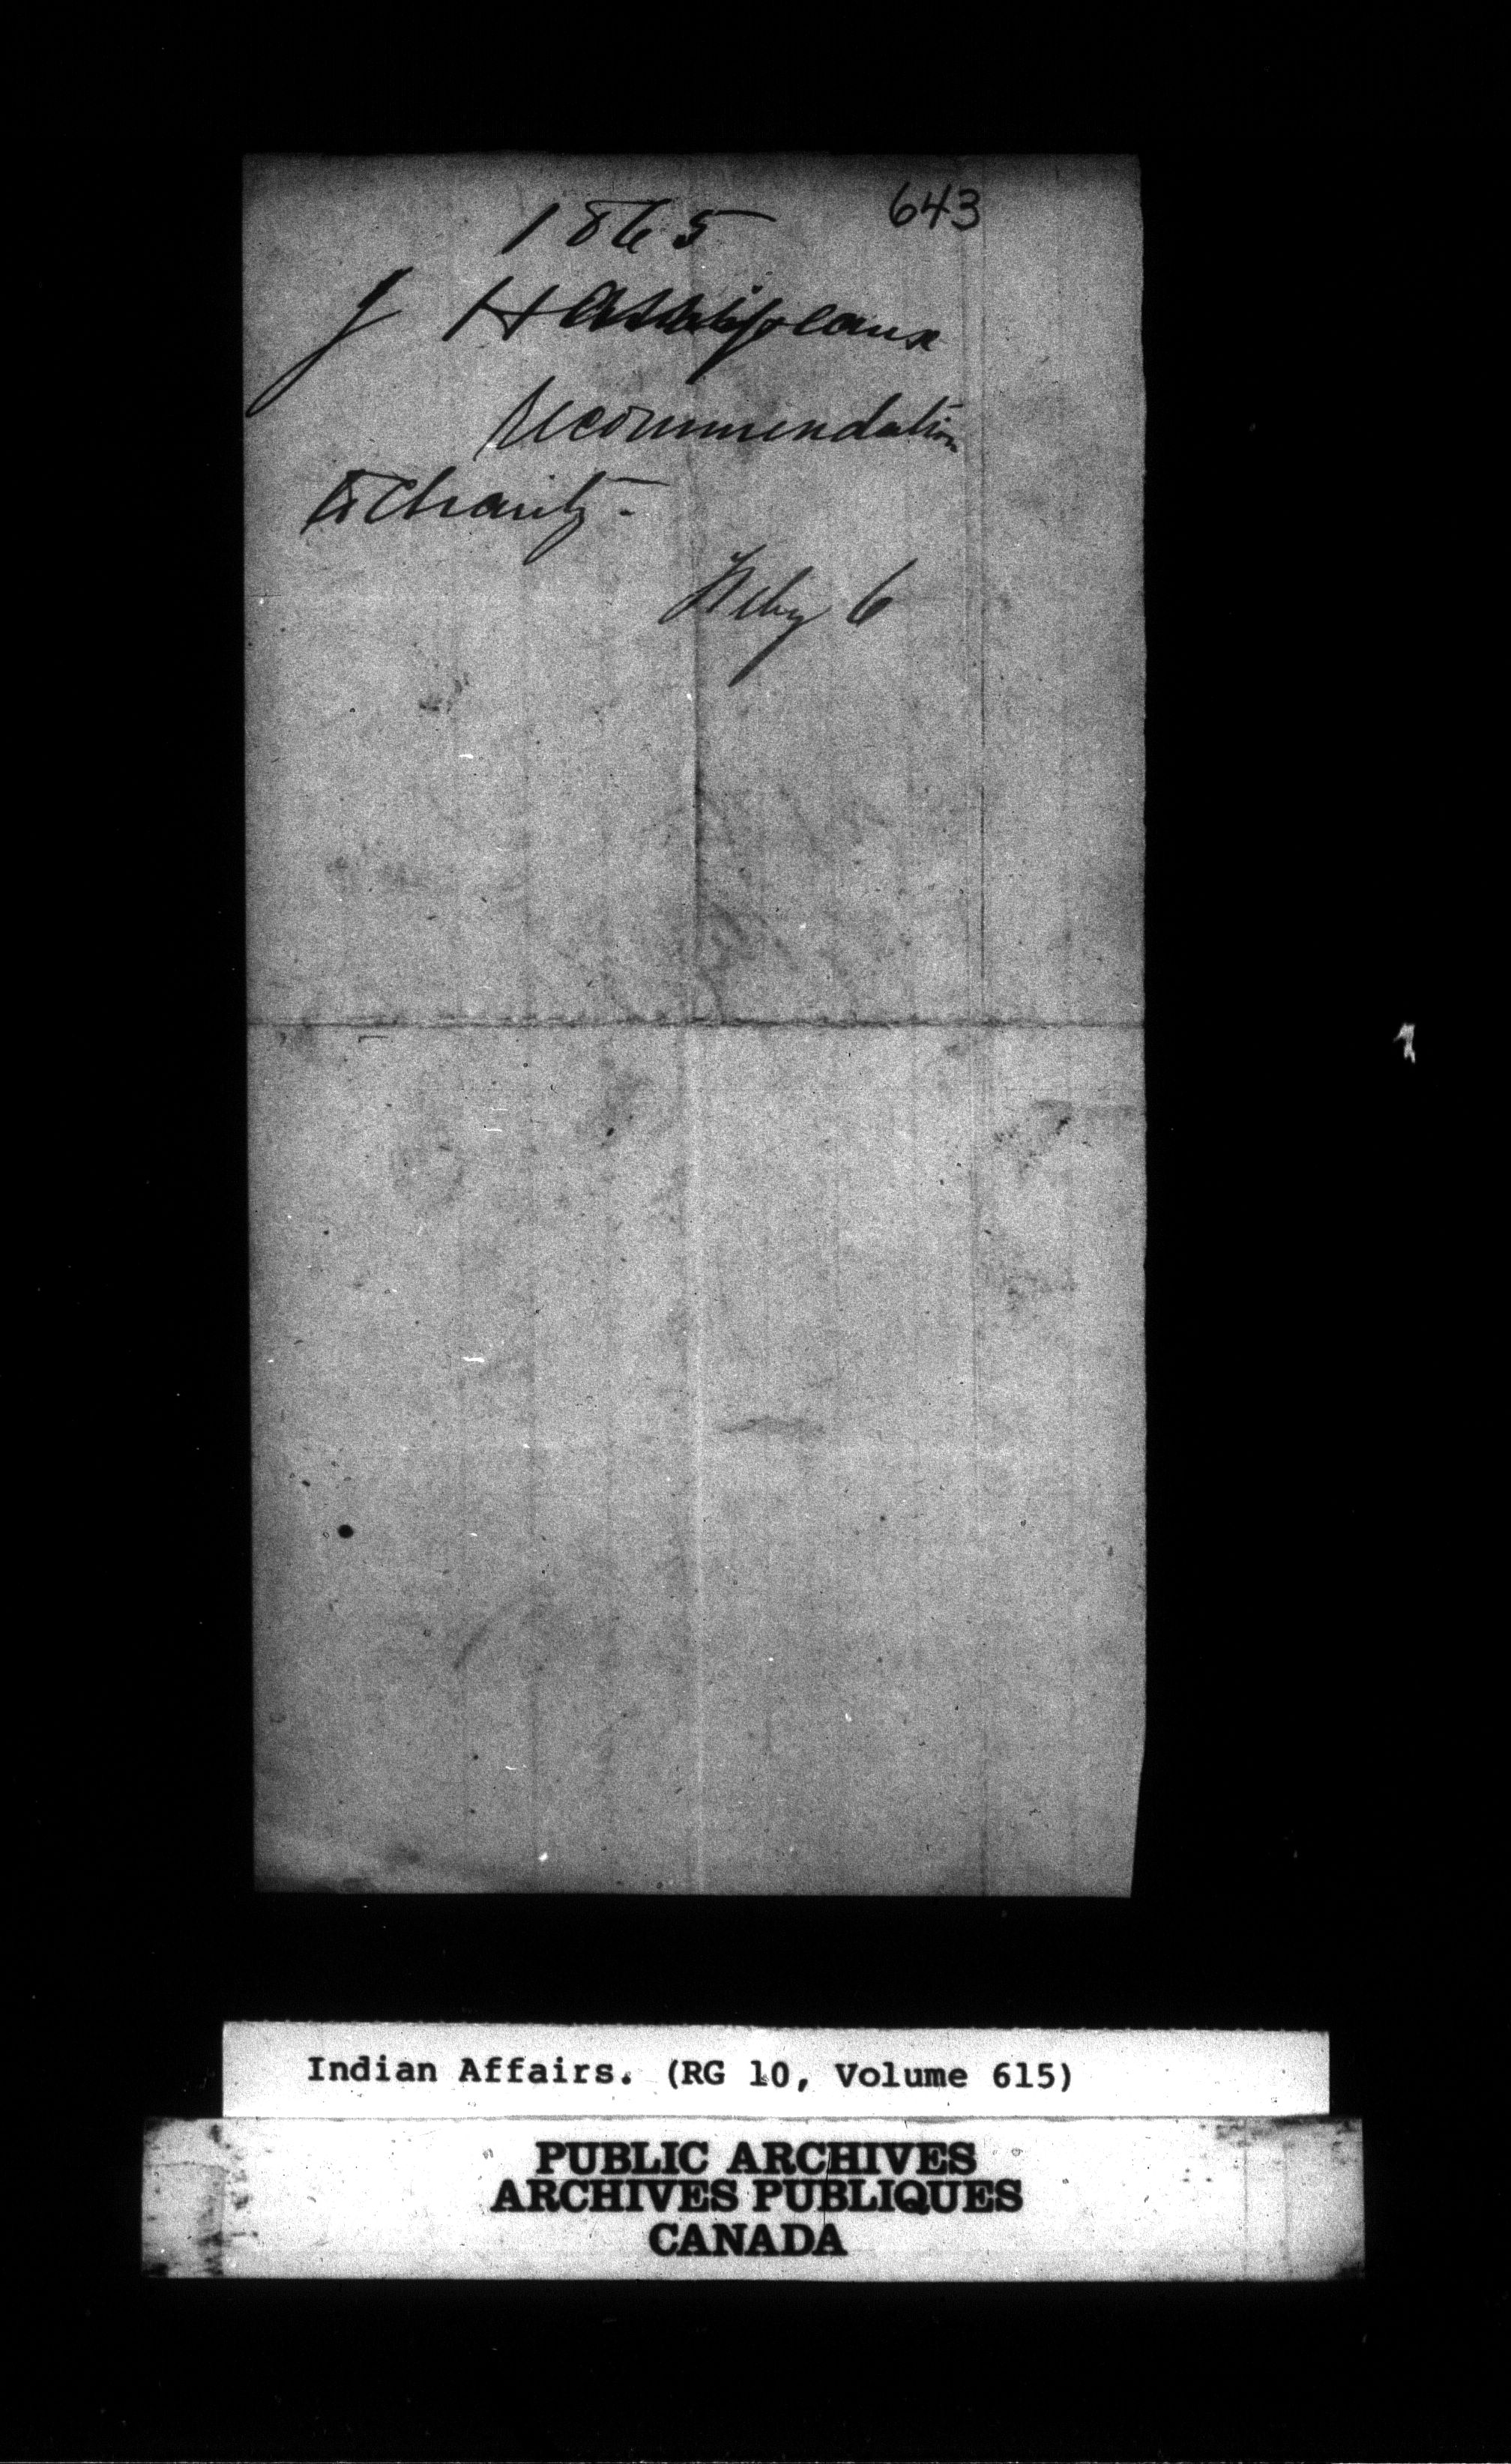 643
1865
J
Recommendation
to Charity -
Feby 6
Indian Affairs. (RG 10, Volume 615)
PUBLIC ARCHIVES
ARCHIVES PUBLIQUES
CANADA